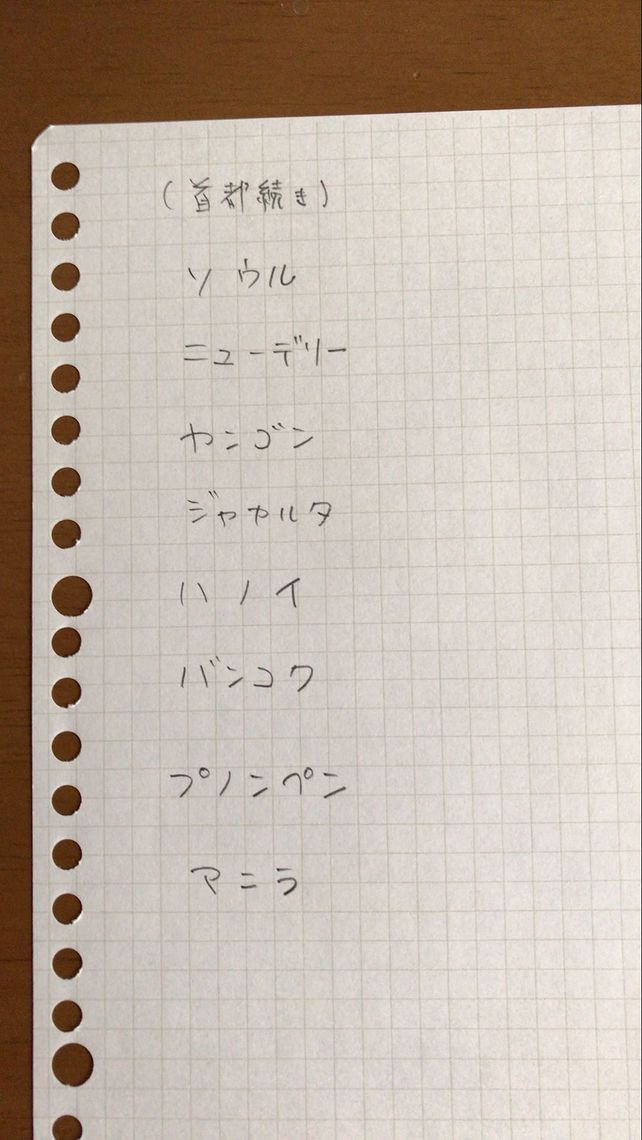 (首都続き)
ソウル
ニューデリー
ヤンゴン
ジャカルタ
ハノイ
バンコク
プノンペン
マニラ